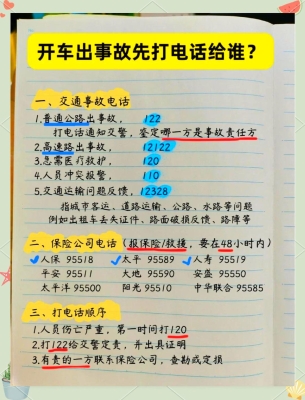 开车出事故先打电话给谁？
一、交通事故电话
1.普通公路出事故，122
打电话通知交警，鉴定哪一方是事故责任方
2.高速路出事故，12122
3.急常医疗救护，120
4.人员冲突报警，110
5.交通运输问题反馈，12328
指城市客运、道路运输、公路、水路等问题
例如出租车丢失证件、路面破损反馈、路障等
二、保险公司电话（报保险/救援，要在48小时内）
人保 95518 太平 95589 人寿 95519
平安 95511 大地 95590 安盛 95550
太平洋 95500 阳光 95510 中华联合 95585
三、打电话顺序
1.人员伤亡严重，第一时间打120
2.打122给交警定责，并出具证明
3.有责的一方联系保险公司，查勘或定损